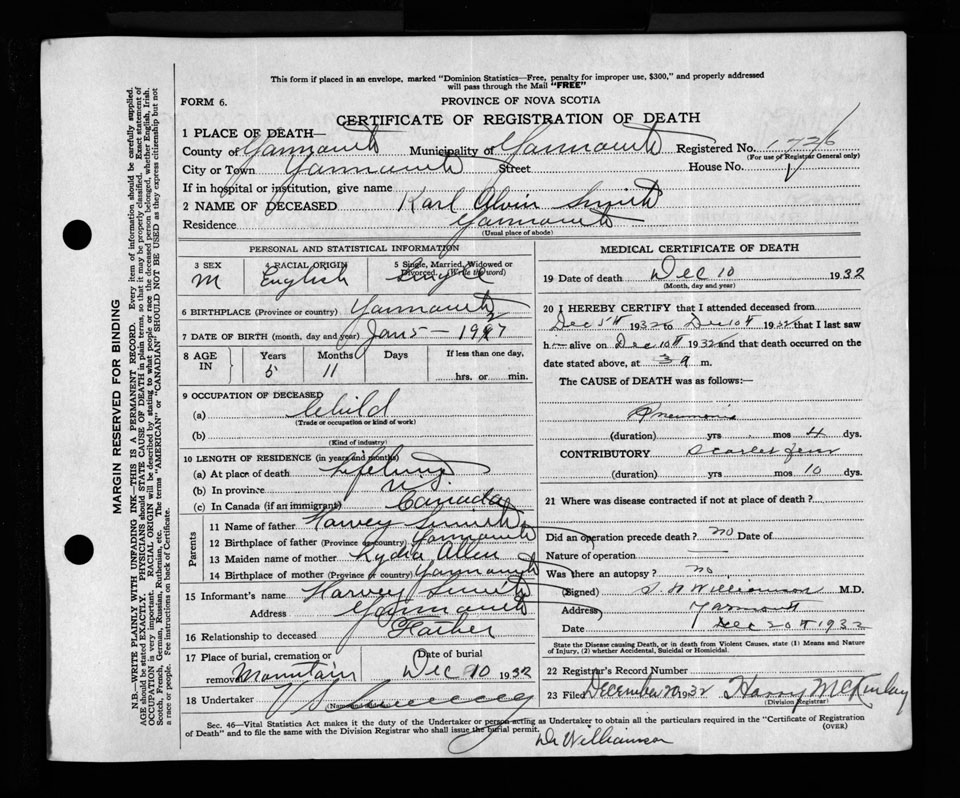 This form if placed in an envelope, marked "Dominion Statistics—Free, penalty for improper use, $300," and properly addressed
will pass through the Mail "FREE"
FORM 6.
PROVINCE OF NOVA SCOTIA
CERTIFICATE OF REGISTRATION OF DEATH
1 PLACE OF DEATH—
County of Yarmouth Municipality of Yarmouth Registered No. 1726
(For use of Registrar General only)
City or Town Yarmouth Street House No.
If in hospital or institution, give name
2 NAME OF DECEASED Karl Alvin Smith
Residence Yarmouth
(Usual place of abode)
PERSONAL AND STATISTICAL INFORMATION
3 SEX 4 RACIAL ORIGIN 5 Single, Married, Widowed or Divorced. (Write the word)
M English Single
6 BIRTHPLACE (Province or country) Yarmouth
7 DATE OF BIRTH (month, day and year) Jan 5 - 1927
8 AGE IN Years Months Days If less than one day,
5 11 hrs. or min.
9 OCCUPATION OF DECEASED
(a) Child
(Trade or occupation or kind of work)
(b)
(Kind of industry)
10 LENGTH OF RESIDENCE (in years and months)
(a) At place of death Lifetime
(b) In province N.S.
(c) In Canada (if an immigrant) Canada
Parents
11 Name of father Harvey Smith
12 Birthplace of father (Province or country) Yarmouth
13 Maiden name of mother Lydia Allen
14 Birthplace of mother (Province or country) Yarmouth
15 Informant's name Harvey Smith
Address Yarmouth
16 Relationship to deceased Father
17 Place of burial, cremation or removal Date of burial
Mountain Dec 10 1932
18 Undertaker
MEDICAL CERTIFICATE OF DEATH
19 Date of death Dec 10 1932
(Month, day and year)
20 I HEREBY CERTIFY that I attended deceased from
Dec 5th 1932 to Dec 10th 1932 that I last saw
h alive on Dec 10th 1932 and that death occurred on the
date stated above, at 3 a m.
The CAUSE of DEATH was as follows:—
Pneumonia
(duration) yrs. mos 4 dys.
CONTRIBUTORY Scarlet fever
(duration) yrs. mos 10 dys.
21 Where was disease contracted if not at place of death?
Did an operation precede death? no Date of
Nature of operation —
Was there an autopsy? no
(Signed) S. W Williamson M.D.
Address Yarmouth
Date Dec 20th 1932
State the Disease causing Death, or in death from Violent Causes, state (1) Means and Nature
of Injury, (2) whether Accidental, Suicidal or Homicidal.
22 Registrar's Record Number
23 Filed December 20 1932 Harry McKinlay
(Division Registrar)
Sec. 46—Vital Statistics Act makes it the duty of the Undertaker or person acting as Undertaker to obtain all the particulars required in the "Certificate of Registration
of Death" and to file the same with the Division Registrar who shall issue the burial permit.
(OVER)
Dr Williamson
MARGIN RESERVED FOR BINDING
N.B.—WRITE PLAINLY WITH UNFADING INK—THIS IS A PERMANENT RECORD. Every item of information should be carefully supplied.
AGE should be stated EXACTLY. PHYSICIANS should STATE CAUSE OF DEATH in plain terms, so that it may be properly classified. Exact statement of
OCCUPATION is very important. RACIAL ORIGIN will be described by stating to what people or race the deceased person belonged, whether English, Irish,
Scotch, French, German, Russian, Ruthenian, etc. The terms "AMERICAN" or "CANADIAN" SHOULD NOT BE USED as they express citizenship but not
a race or people. See instructions on back of Certificate.